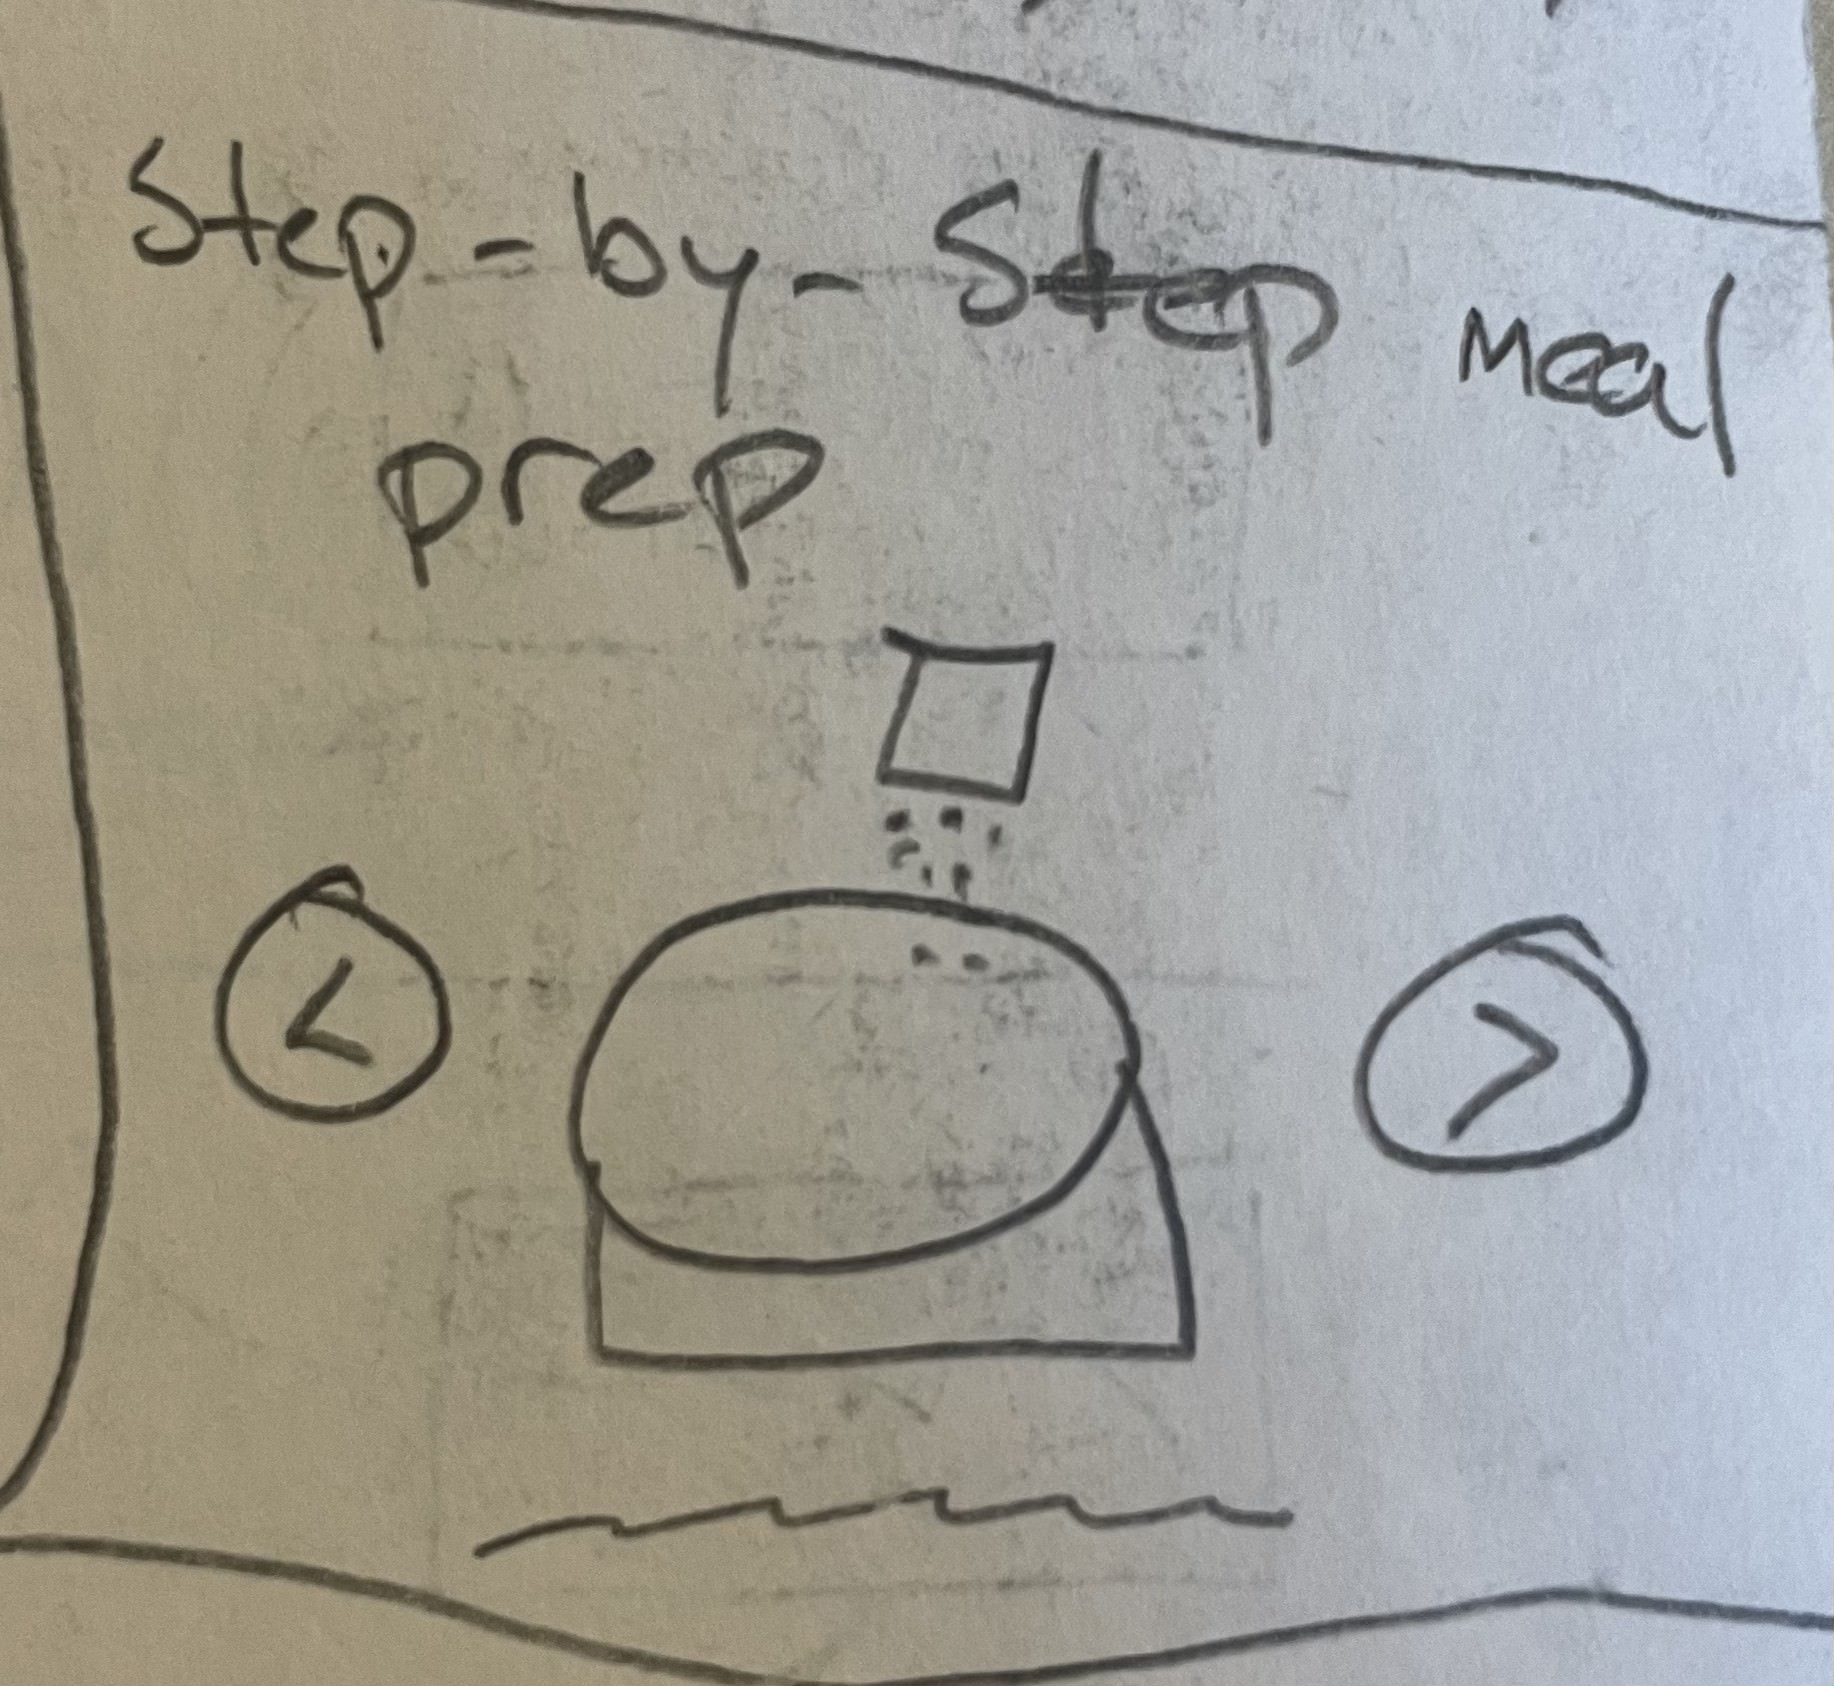 Step-by-Step meal
prep
<
>